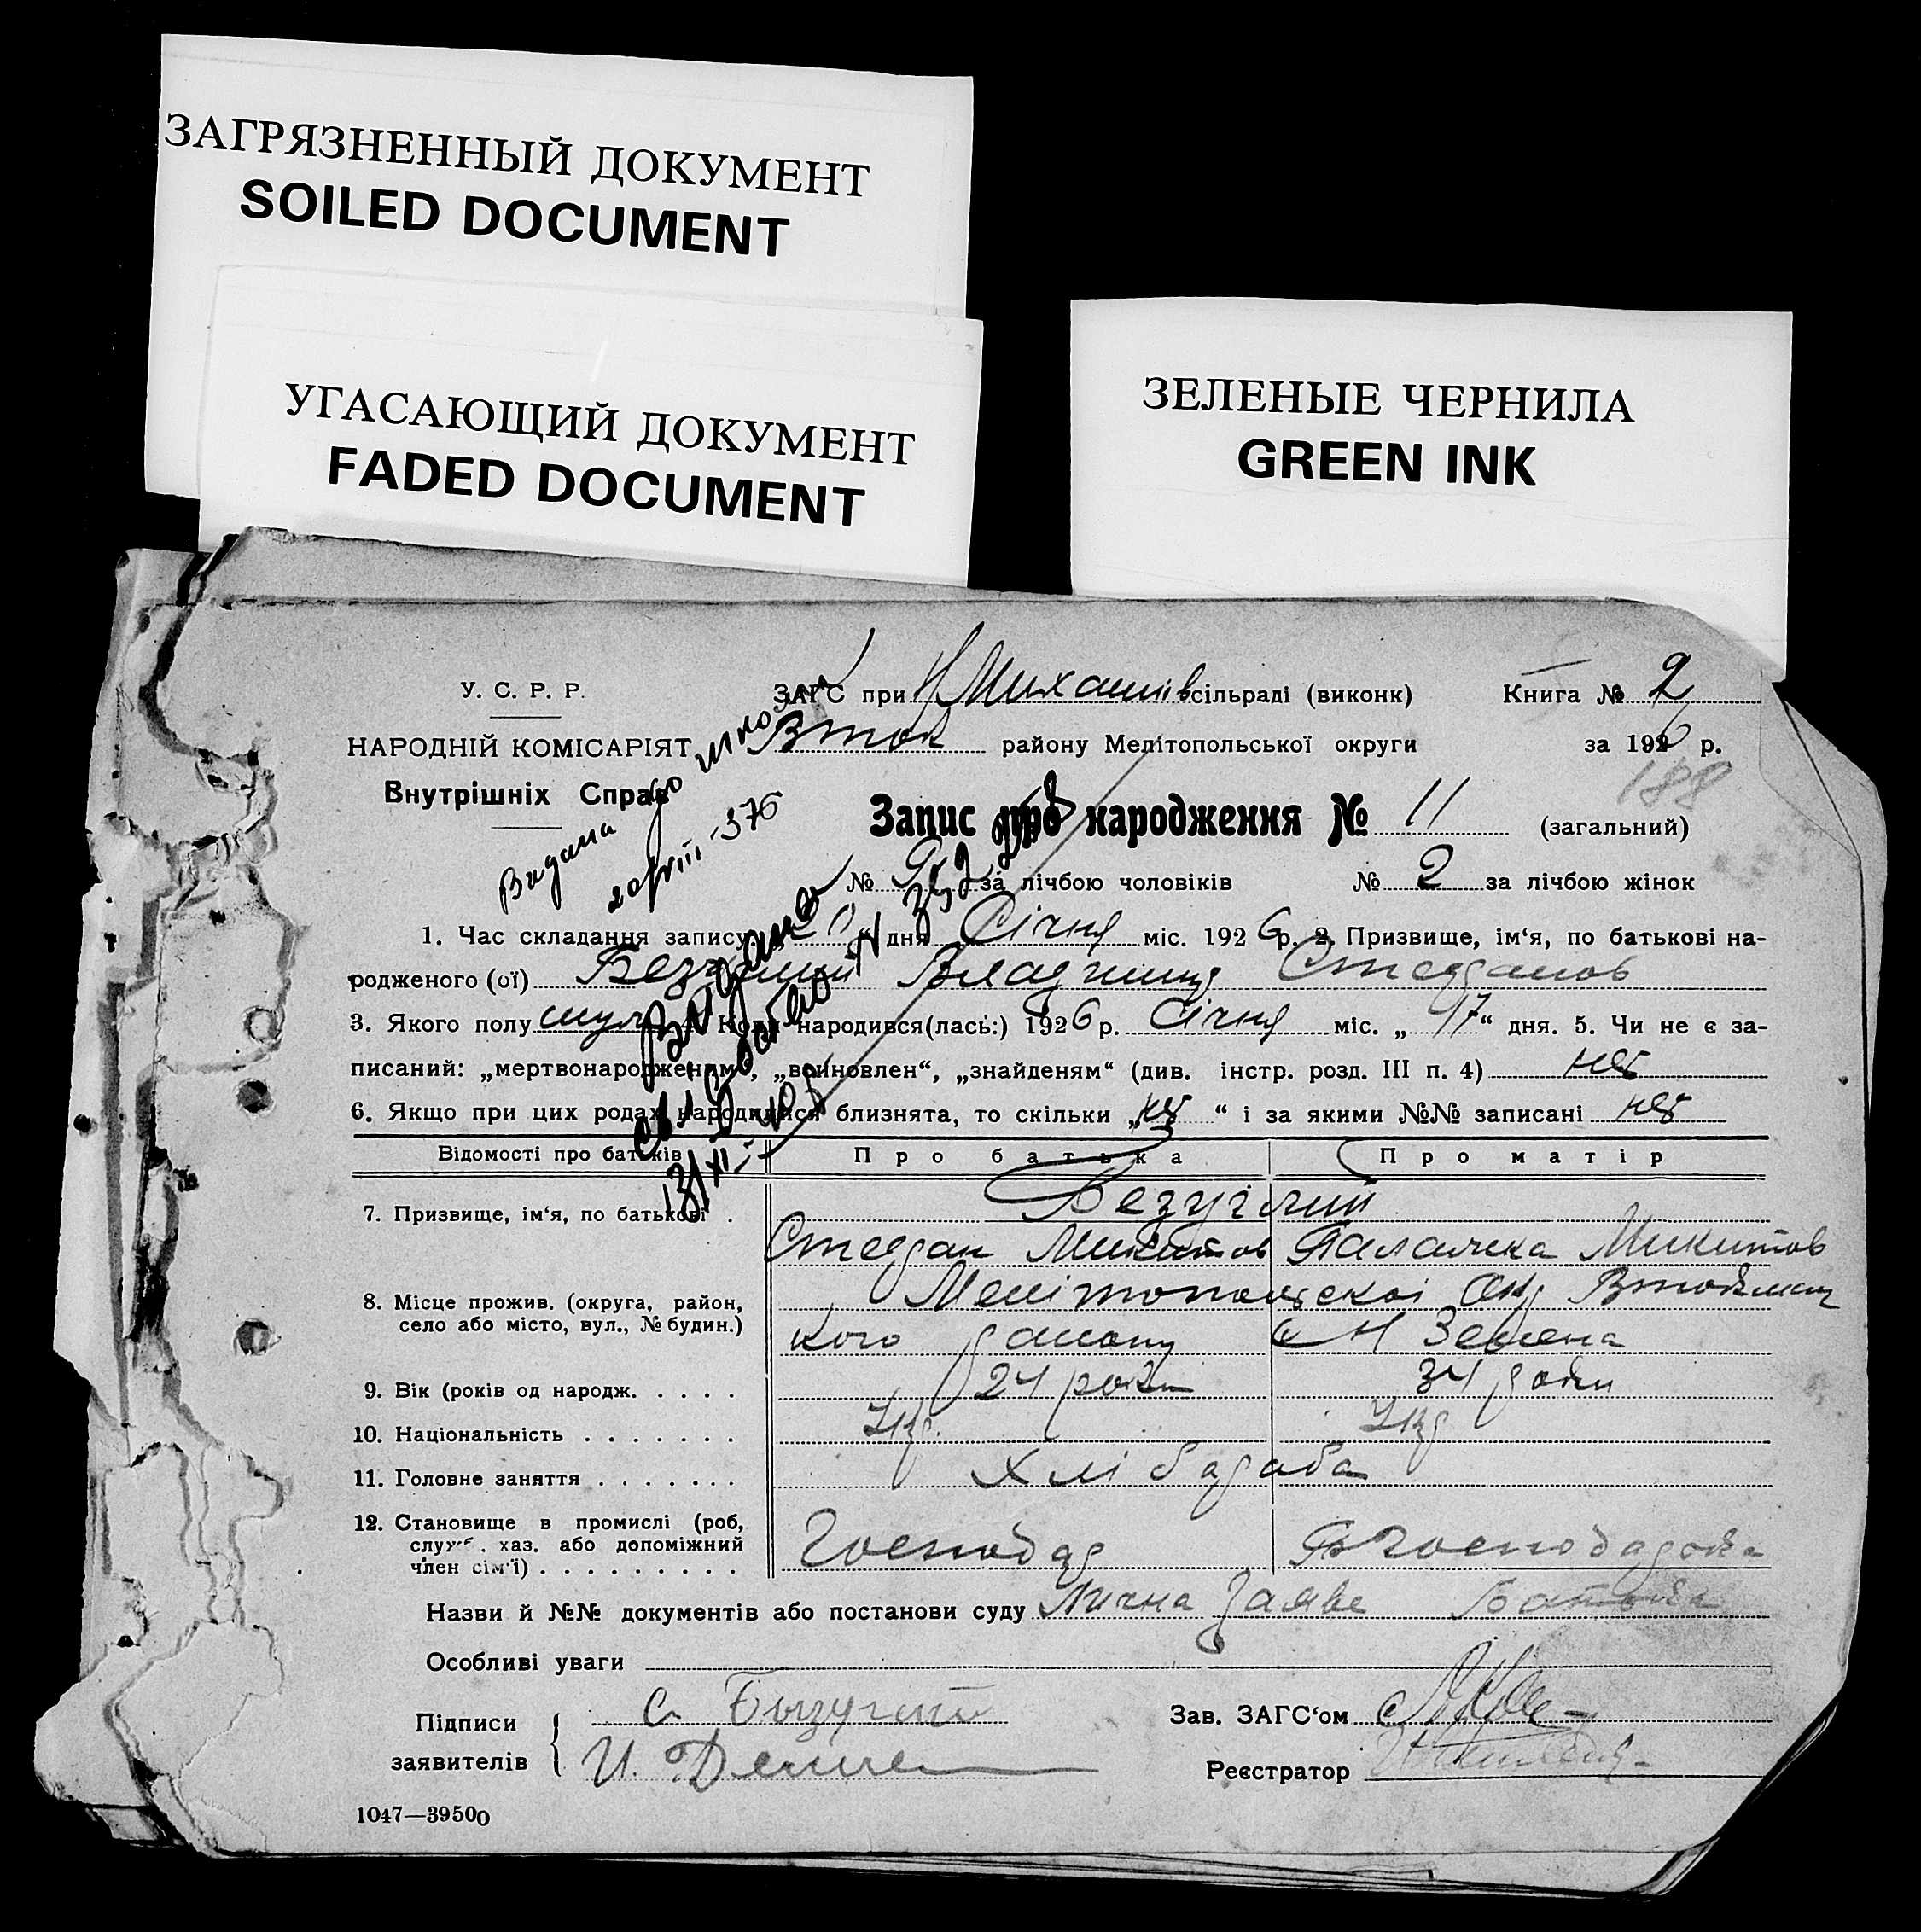 ЗАГРЯЗНЕННЫЙ ДОКУМЕНТ
SOILED DOCUMENT
УГАСАЮЩИЙ ДОКУМЕНТ
FADED DOCUMENT
ЗЕЛЕНЫЕ ЧЕРНИЛА
GREEN INK
У. С. Р. Р.
ЗАГС при Н Михайлів сільраді (виконк) Книга № 2
НАРОДНІЙ КОМІСАРІЯТ
району Мелітопольської округи за 1926 р.
188
Внутрішніх Справ
Запис про народження № 11 (загальний)
№ 9 за лічбою чоловіків № 2 за лічбою жінок
1. Час складання запису дня Січня міс. 1926 р. 2. Призвище, ім‘я, по батькові на-
родженого (ої) Безуглий Степанов
3. Якого полу 4. Коли народився(лась:) 1926 р. Січня міс. „ 17 “ дня. 5. Чи не є за-
писаний: „мертвонародженим“, „вoиновлен“, „знайденям“ (див. інстр. розд. III п. 4) нет
6. Якщо при цих родах народилися близнята, то скільки „ нет “ і за якими №№ записані нет
Відомості про батьків Про батька Про матір
7. Призвище, ім‘я, по батькові .
Безуглий
Степан Микитов Палажка Микитов
8. Місце прожив. (округа, район,
село або місто, вул., № будин.)
Мелітопольскої Окр
кого району Зелена
9. Вік (років од народж. . . . . 24 роки 34 роки
10. Національність . . . . . . . Укр. Укр
11. Головне заняття . . . . . . . Хлібороба
12. Становище в промислі (роб,
служб. хаз. або допоміжний
член сім‘ї) . . . . . . . . .
Господар господарка
Назви й №№ документів або постанови суду Лична Заява Батька
Особливі уваги
Підписи
заявителів
С. Безуглий
И.
Зав. ЗАГС‘ом
Реєстратор
1047—39500
Видана
376
Видано